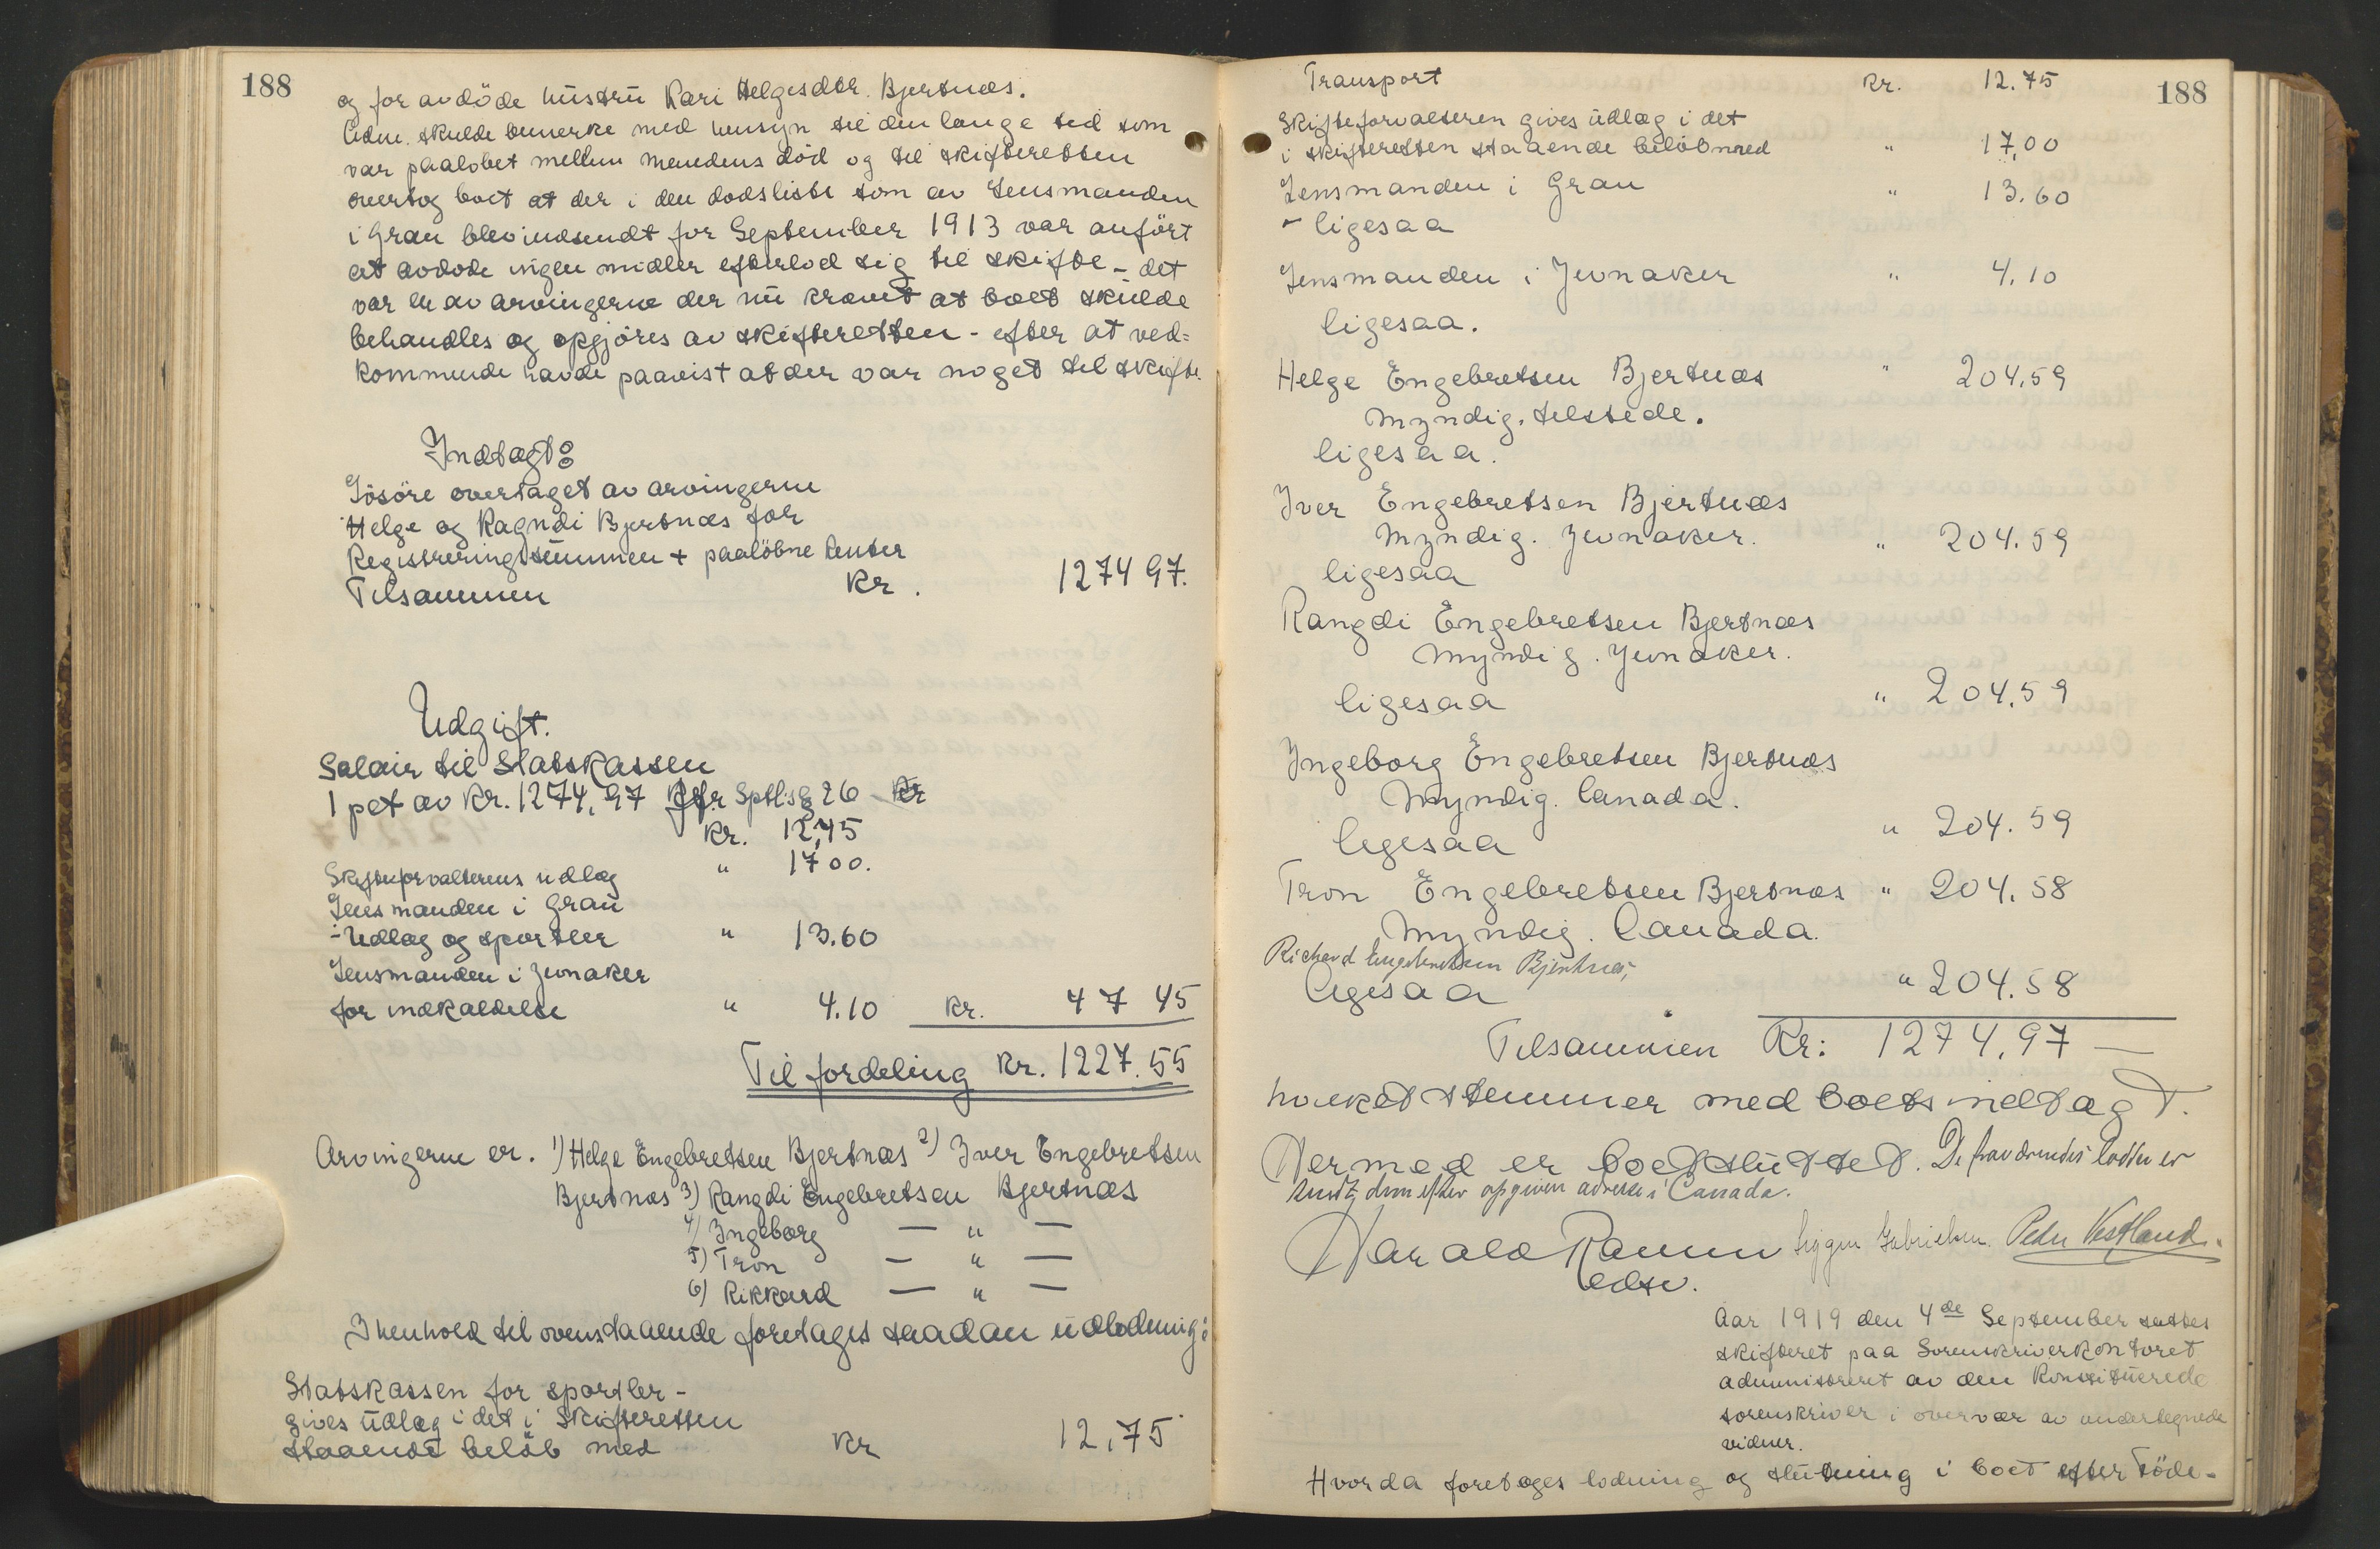 188
og for avdöde hüstrü Kari Helgesdtr. Bjertnæs.
Adm. skulde bemerke med hensyn til den lange tid som
var paalöbet mellem mendens död og til skifteretten
overtog boet at der i den dodsliste som av Lensmanden
i Gran blev indsendt for September 1913 var anfört
at avdode ingen midler efterlod sig til skifte - det
var en av arvingerne der nü krævet at boet skülde
behandles og opgjöres av skifteretten - efter at ved=
kommende havde paavist at der var noget til skifte.
Indtægt:
Lösöre overtaget av arvingerne
Helge og Ragndi Bjertnæs for
Registreringssümmen + paalöbne renter
Tilsammen Kr. 1274 97.
Udgift.
Salair til Statskassen
1 pct av Kr. 1274,97 jfr Sptls § 26 Kr
Kr. 12,75
Skifteforvalterens udlæg " 17 00.
Lensmanden i Gran
- Udlæg og sportler " 13.60
Lensmanden i Jevnaker
for indkaldelse " 4.10 Kr. 47 45
Til fordeling Kr. 1227.55
Arvingerne er. 1) Helge Engebretsen Bjertnæs 2) Iver Engebretsen
Bjertnæs 3) Rangdi Engebretsen Bjertnæs
4) Ingeborg — " —
5) Tron — " —
6) Rikkard — " —
I henhold til ovenstaaende foretages saadan üdlodning:
Statskassen for sportler -
gives üdlæg i det i Skifteretten
staaende belöb med Kr 12,75
Transport Kr. 12.75
188
Skifteforvalteren gives üdlæg i det
i skifteretten staaende belöb med " 17,00
Lensmanden i Gran " 13.60
- ligesaa
Lensmanden i Jevnaker " 4.10
ligesaa.
Helge Engebretsen Bjertnæs " 204,59
Myndig. tilstede.
ligesaa.
Iver Engebretsen Bjertnæs
Myndig. Jevnaker. " 204.59
ligesaa
Rangdi Engebretsen Bjertnæs
Myndig. Jevnaker.
ligesaa " 204,59
Ingeborg Engebretsen Bjertnæs
Myndig. Canada.
ligesaa " 204.59
Tron Engebretsen Bjertnæs " 204.58
Myndig. Canada.
Richard Engebretsen Bjertnæs,
ligesaa " 204.58
Tilsammen Kr: 1274,97 —
hvilket stemmer med boets indtægt.
Dermed er boet slüttet. De fraværendes lodder er
sendt dem efter opgiven adresse i Canada.
Harald Ramm
edsv.
Peder Vestland.
Aar 1919 den 4de September sattes
skifteret paa Sorenskriverkontoret
administreret av den Konstitüerede
sorenskriver i overvær av undertegnede
vidner.
Hvorda foretages lodning og slütning i boet efter Töde-